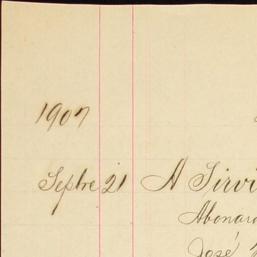 1907
Septre 21 A Sirvi
Abonar
José